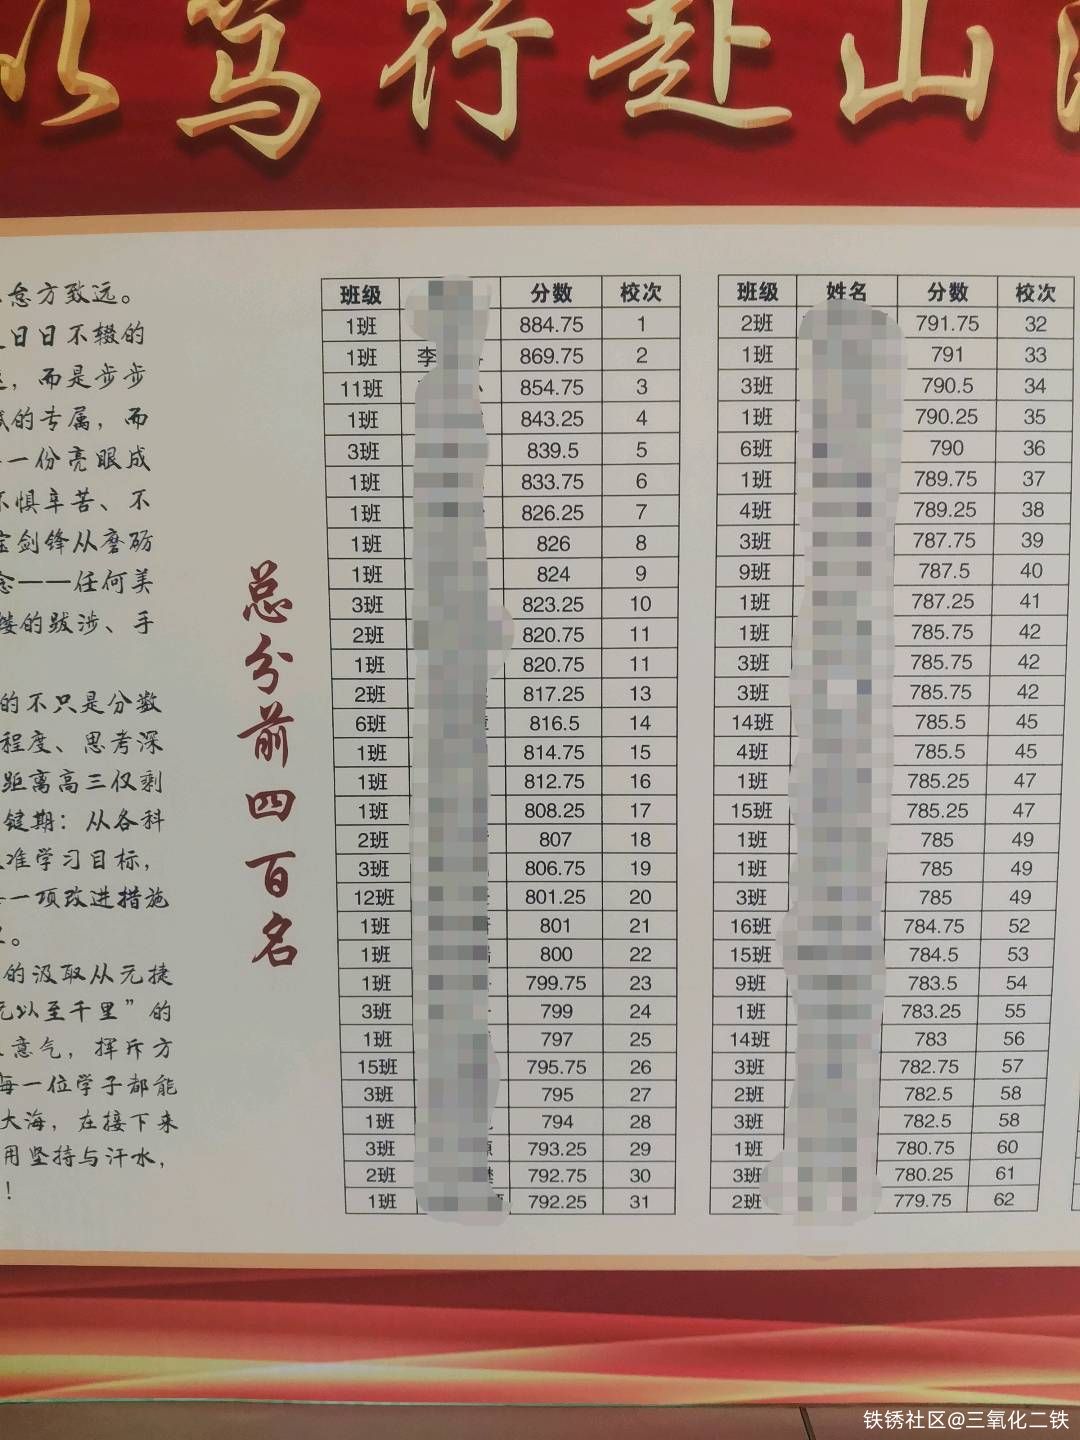 以笃行赴山
念方致远。
日日不辍的
，而是步步
的专属，而
一份亮眼成
不惧辛苦、不
宝剑锋从磨砺
念——任何美
的跋涉、手
的不只是分数
程度、思考深
距离高三仅剩
键期：从各科
准学习目标，
一项改进措施
。
的汲取从元捷
元以至千里”的
意气，挥斥方
每一位学子都能
大海，在接下来
用坚持与汗水，
！
总分前四百名
班级 分数 校次
1班 884.75 1
1班 李 869.75 2
11班 854.75 3
1班 843.25 4
3班 839.5 5
1班 833.75 6
1班 826.25 7
1班 826 8
1班 824 9
3班 823.25 10
2班 820.75 11
1班 820.75 11
2班 817.25 13
6班 816.5 14
1班 814.75 15
1班 812.75 16
1班 808.25 17
2班 807 18
3班 806.75 19
12班 801.25 20
1班 801 21
1班 800 22
1班 799.75 23
3班 799 24
1班 797 25
15班 795.75 26
3班 795 27
1班 794 28
3班 793.25 29
2班 792.75 30
1班 792.25 31
班级 姓名 分数 校次
2班 791.75 32
1班 791 33
3班 790.5 34
1班 790.25 35
6班 790 36
1班 789.75 37
4班 789.25 38
3班 787.75 39
9班 787.5 40
1班 787.25 41
1班 785.75 42
3班 785.75 42
3班 785.75 42
14班 785.5 45
4班 785.5 45
1班 785.25 47
15班 785.25 47
1班 785 49
1班 785 49
3班 785 49
16班 784.75 52
15班 784.5 53
9班 783.5 54
1班 783.25 55
14班 783 56
3班 782.75 57
2班 782.5 58
3班 782.5 58
1班 780.75 60
3班 780.25 61
2班 779.75 62
铁锈社区@三氧化二铁